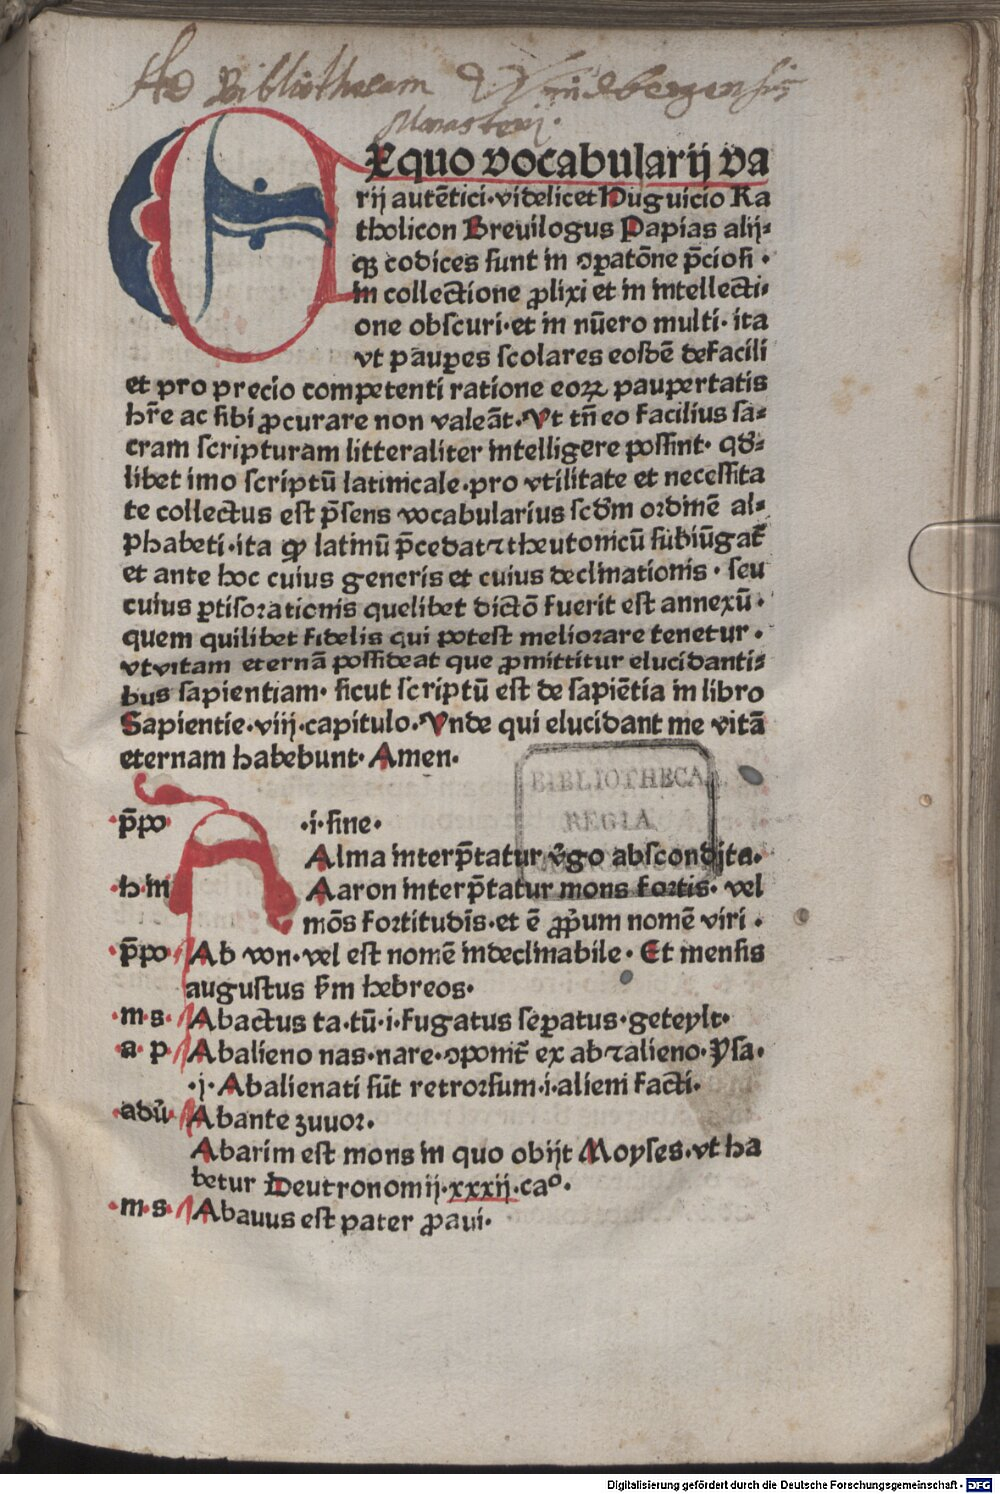 Ad Bibliothecam Windbergensis
Monasterij.
EX quo vocabularij va
rij autētici·videlicet Huguicio Ka
tholicon Breuilogus Papias alij⸗
qꝫ codices sunt in ꝯꝑatōne p̄ciosi·
in collectione ꝓlixi et in intellecti⸗
one obscuri·et in nūero multi·ita
vt pauꝑes scolares eosdē defacili
et pro precio competenti ratione eoꝝ paupertatis
hr̄e ac sibi ꝓcurare non valeāt·Vt tn̄ eo facilius sa⸗
cram scripturam litteraliter intelligere possint· qd̄⸗
libet imo scriptū latinicale·pro vtilitate et necessita
te collectus est p̄sens vocabularius scd̄m ordinē al⸗
phabeti·ita ꝙ latinū p̄cedat ⁊ theutonicū subiūgat᷑
et ante hoc cuius generis et cuius declinationis·seu
cuius ꝑtis orationis quelibet dictō fuerit est annexū·
quem quilibet fidelis qui potest meliorare tenetur·
vt vitam eternā possideat que ꝓmittitur elucidanti⸗
bus sapientiam· sicut scriptū est de sapiētia in libro
Sapientie·viij·capitulo·Vnde qui elucidant me vitā
eternam habebunt·Amen·
·p̄po A ·i·sine·
Alma interp̄tatur v̄go abscondita·
·h·in Aaron interp̄tatur mons fortis· vel
mōs fortitudīs·et ē ꝓp̄um nomē viri·
·p̄po· Ab von·vel est nomē indeclinabile·Et mensis
augustus s̄m hebreos·
·m·s· Abactus ta·tū·i·fugatus seꝑatus·geteylt·
·a·p· Abalieno nas·nare·ꝯponit᷑ ex ab ⁊ alieno·Ysa·
·j·Abalienati sūt retrorsum·i·alieni facti·
·adū· Abante zuuor·
Abarim est mons in quo obijt Moyses·vt ha
betur Deutronomij·xxxij·caº·
·m·s· Abauus est pater ꝓaui·
BIBLIOTHECA
REGIA
Digitalisierung gefördert durch die Deutsche Forschungsgemeinschaft - DFG